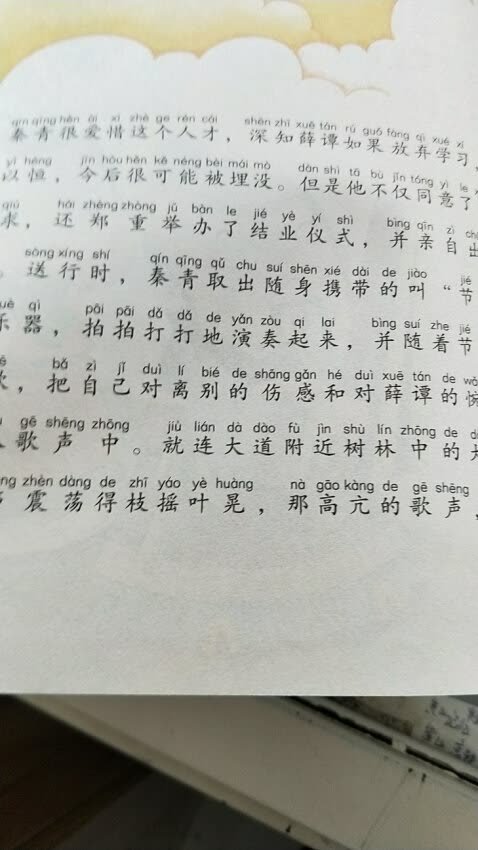 qín qīng hěn ài xī zhè ge rén cái shēn zhī xuē tán rú guǒ fàng qì xué xí
秦青很爱惜这个人才，深知薛谭如果放弃学习，
yǐ héng jīn hòu hěn kě néng bèi mái mò dàn shì tā bù jǐn tóng yì le
以恒，今后很可能被埋没。但是他不仅同意了
qiú hái zhèng zhòng jǔ bàn le jié yè yí shì bìng qīn zì chū
求，还郑重举办了结业仪式，并亲自出
sòng xíng shí qín qīng qǔ chu suí shēn xié dài de jiào jié
。送行时，秦青取出随身携带的叫“节
yuè qì pāi pāi dǎ dǎ de yǎn zòu qi lai bìng suí zhe jié
乐器，拍拍打打地演奏起来，并随着节
bǎ zì jǐ duì lí bié de shāng gǎn hé duì xuē tán de
歌，把自己对离别的伤感和对薛谭的
gē shēng zhōng jiù lián dà dào fù jìn shù lín zhōng de
歌声中。就连大道附近树林中的
zhèn dàng de zhī yáo yè huàng nà gāo kàng de gē shēng
震荡得枝摇叶晃，那高亢的歌声，